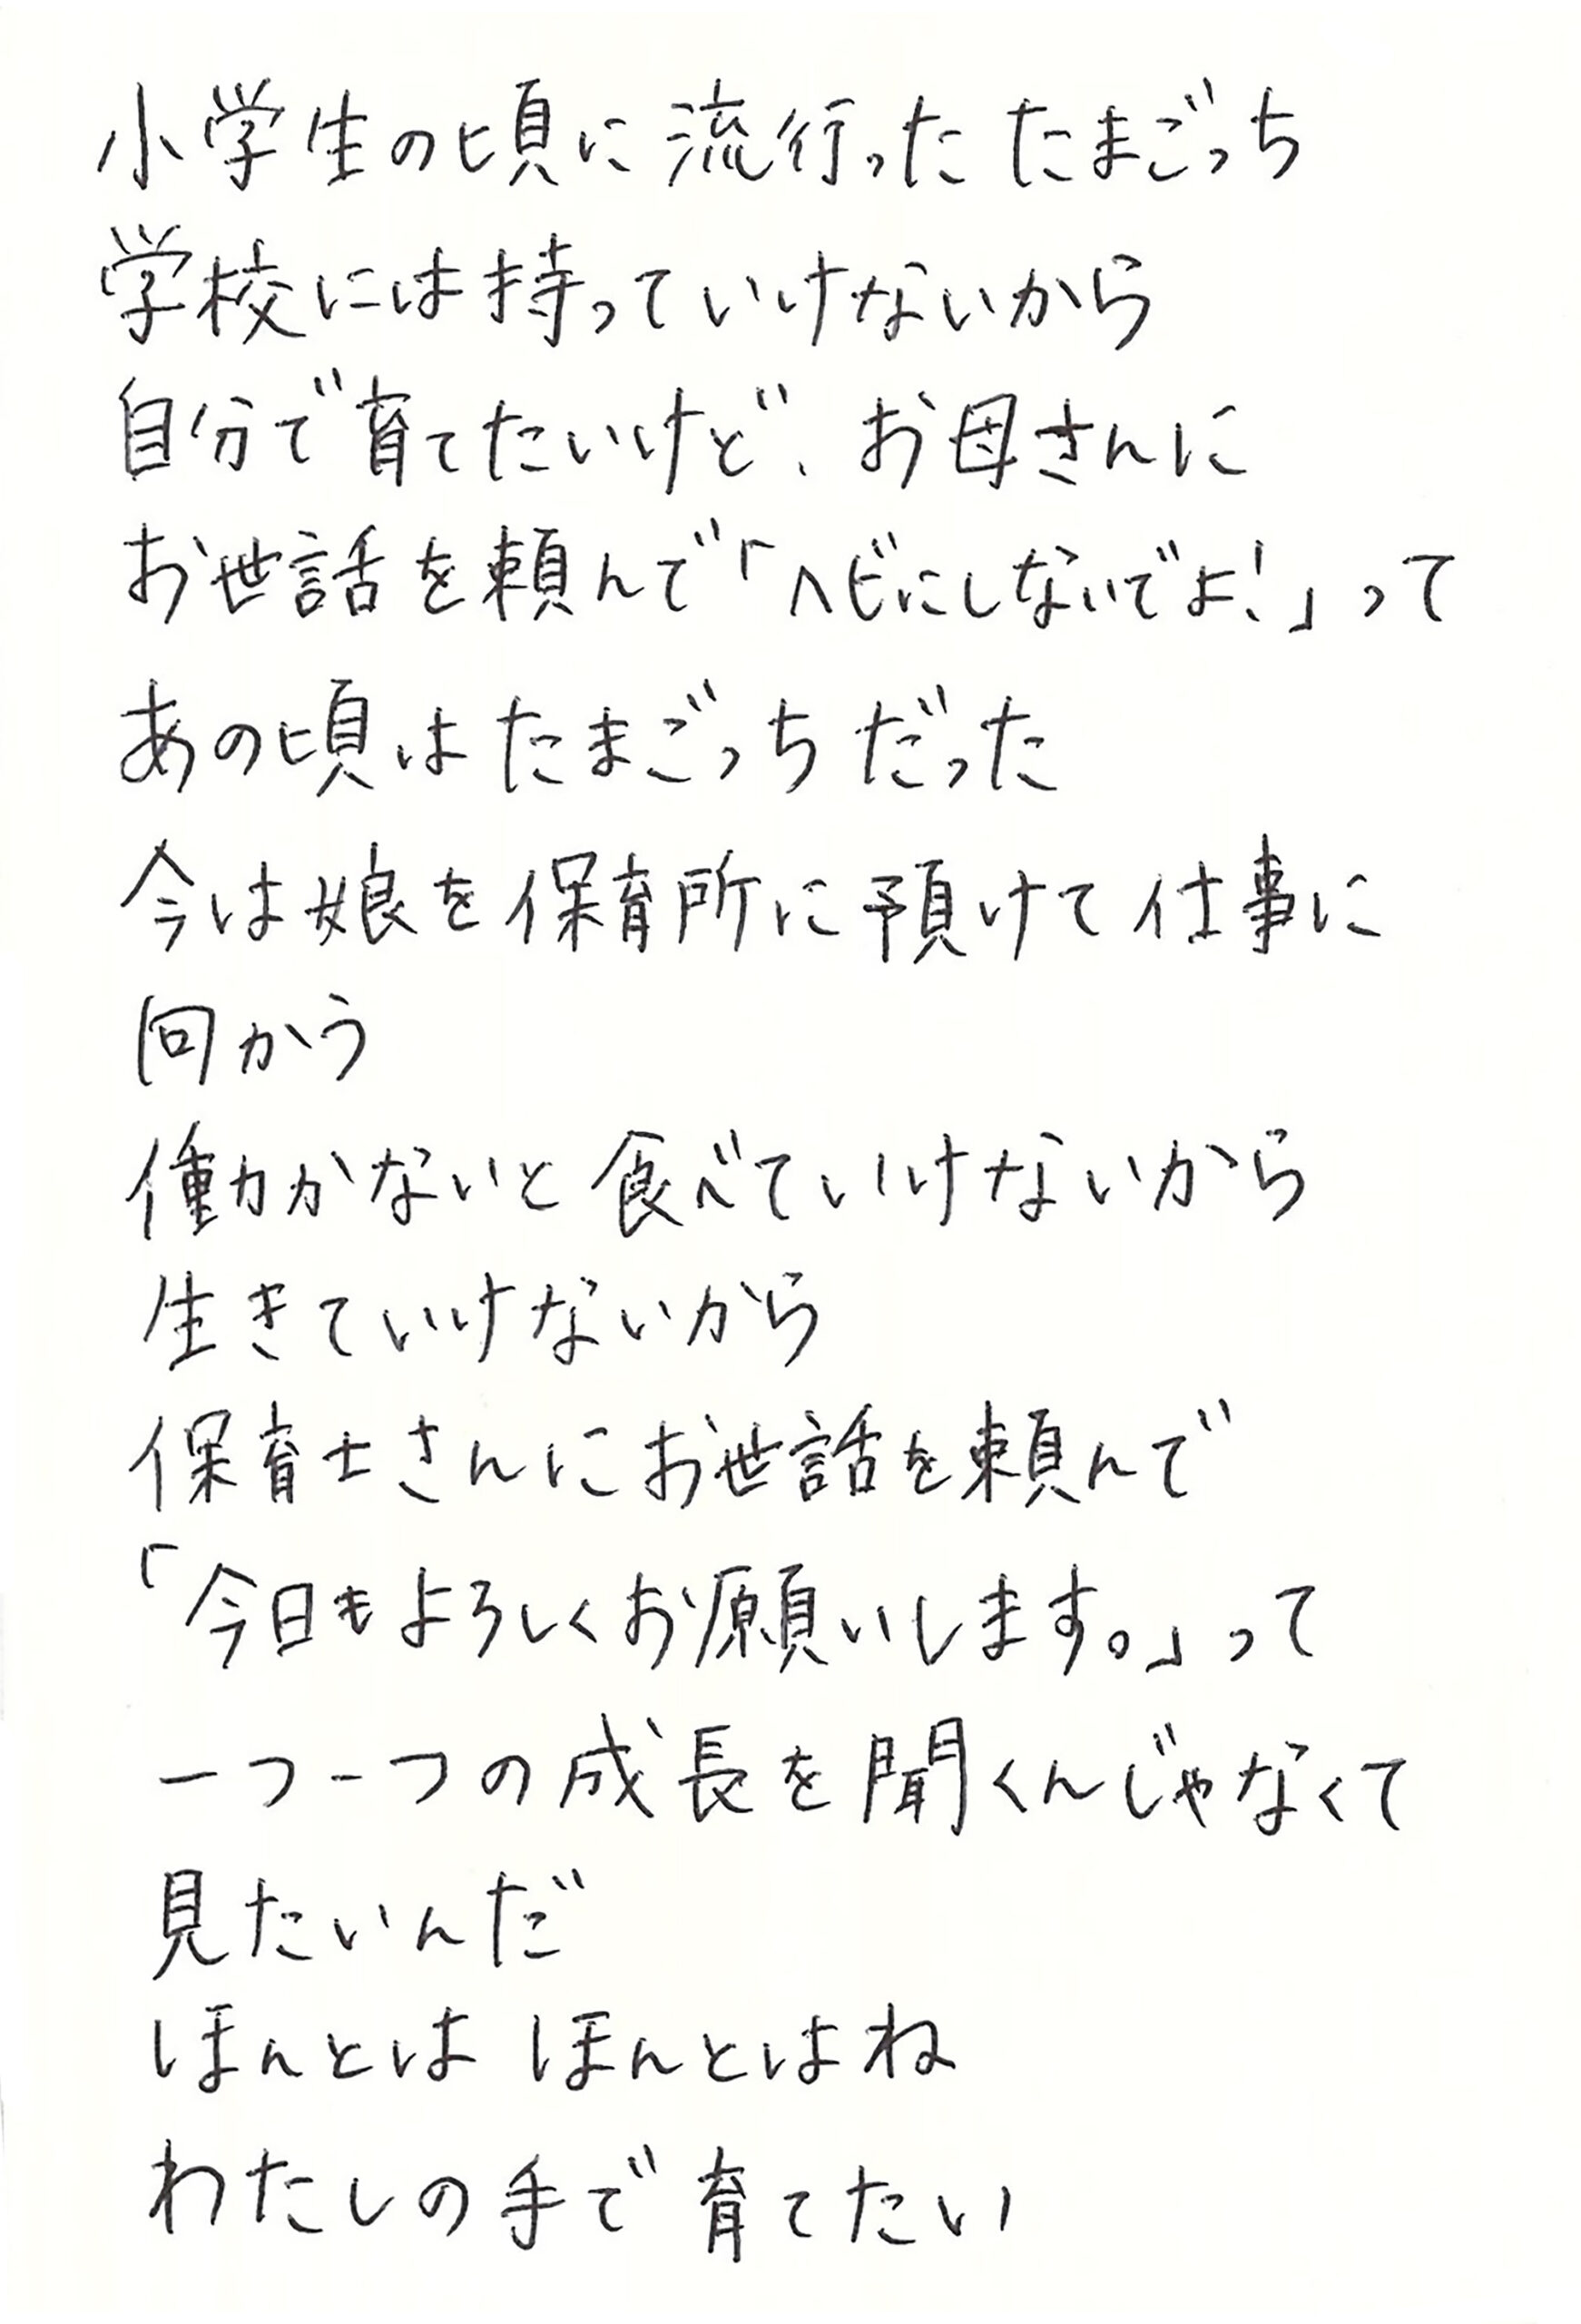 小学生の頃に流行ったたまごっち
学校には持っていけないから
自分で育てたいけど、お母さんに
お世話を頼んで「ヘビにしないでよ！」って
あの頃はたまごっちだった
今は娘を保育所に預けて仕事に
向かう
働かないと食べていけないから
生きていけないから
保育士さんにお世話を頼んで
「今日もよろしくお願いします。」って
一つ一つの成長を聞くんじゃなくて
見たいんだ
ほんとは ほんとはね
わたしの手で育てたい